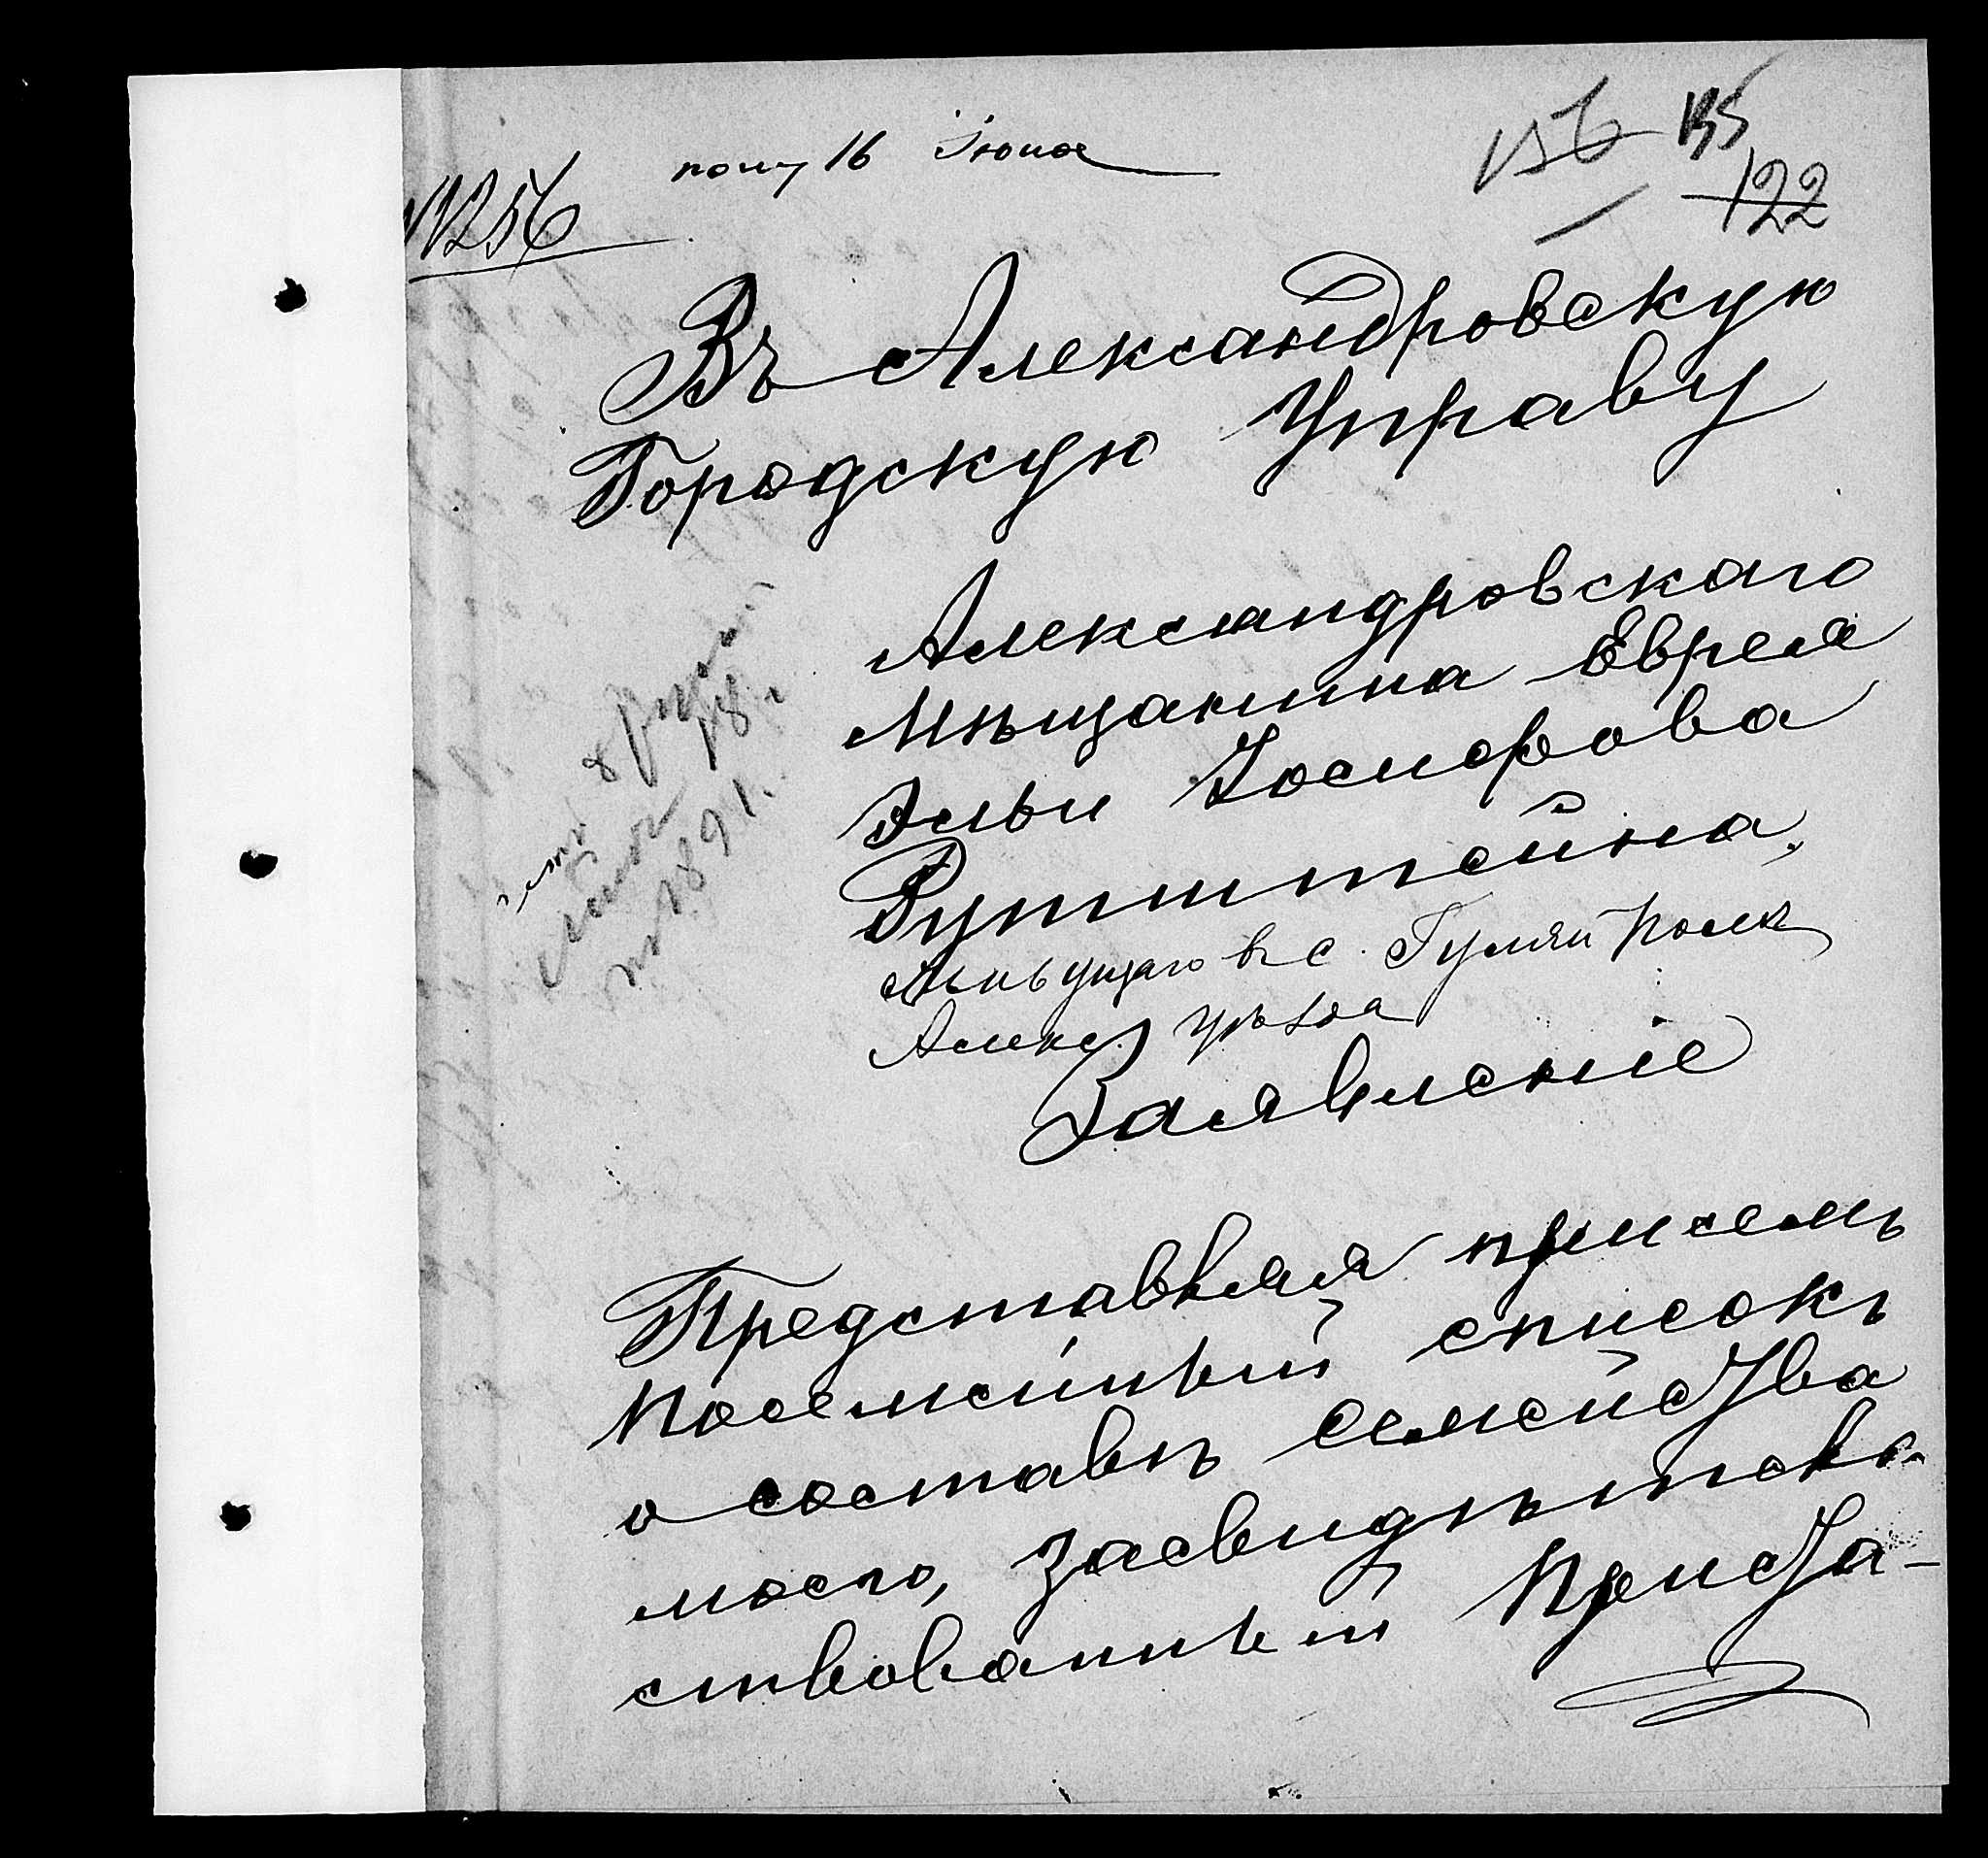 156 135
полу 16 Іюня
122
№256
Въ Александровскую
Городскую Управу
Александровскаго
Мѣщанина Еврея
Эльи Іосифова
Рутштейна,
живущаго въ с. Гуляй Поле
Алекс. уѣзда
Заявленіе
Представляя при семъ
посемейный списокъ
о составѣ семейства
моего, засвидѣтель-
ствованный Приста-
1891.